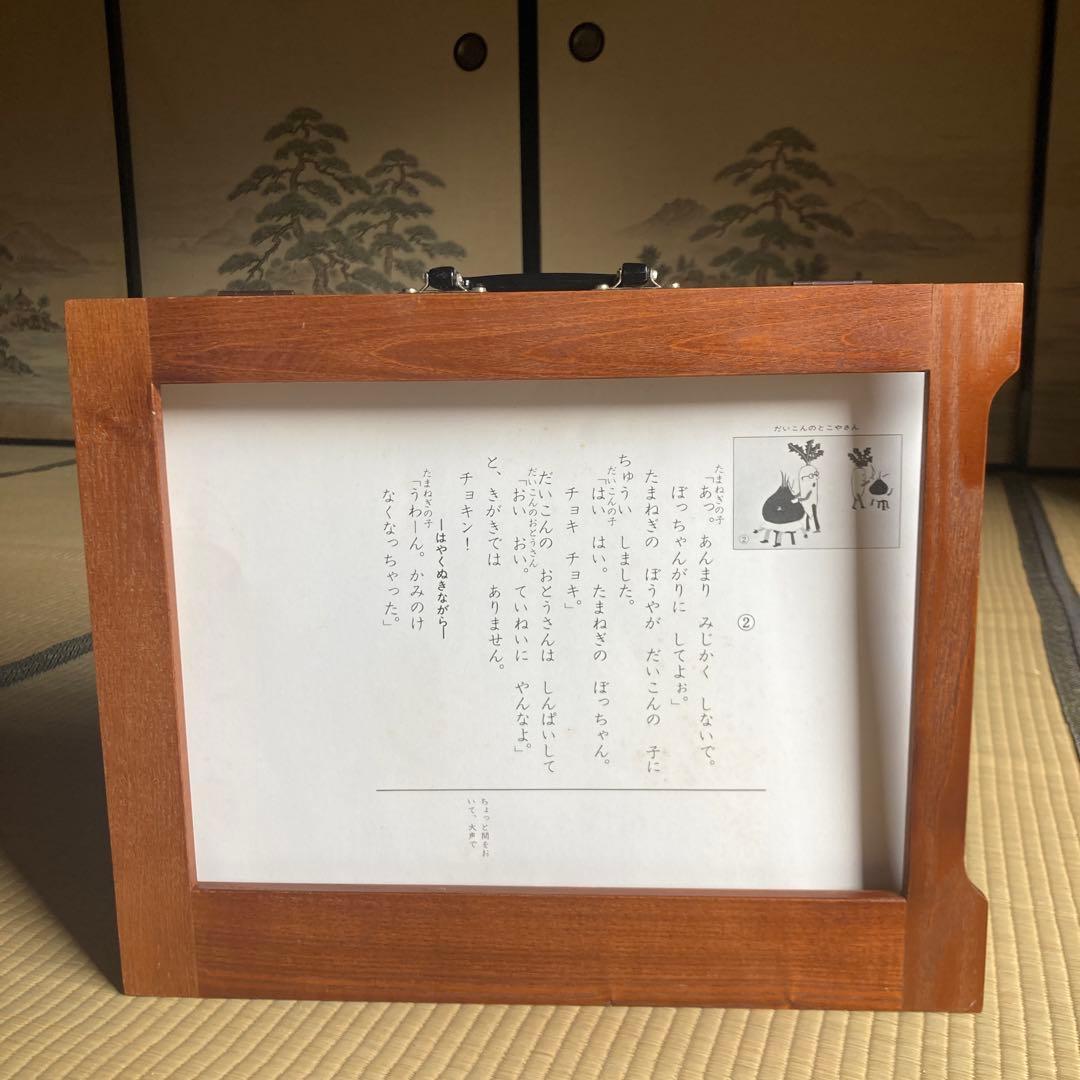 だいこんのとこやさん
②
②
たまねぎの子
「あっ。あんまり みじかく しないで。
ぼっちゃんがりに してよぉ。」
たまねぎの ぼうやが だいこんの 子に
ちゅうい しました。
だいこんの子
「はい はい。たまねぎの ぼっちゃん。
チョキ チョキ。」
だいこんの おとうさんは しんぱいして
だいこんのおとうさん
「おい おい。ていねいに やんなよ。」
と、きがきでは ありません。
チョキン!
―はやくぬきながら―
たまねぎの子
「うわーん。かみのけ
なくなっちゃった。」
ちょっと間をお
いて、大声で